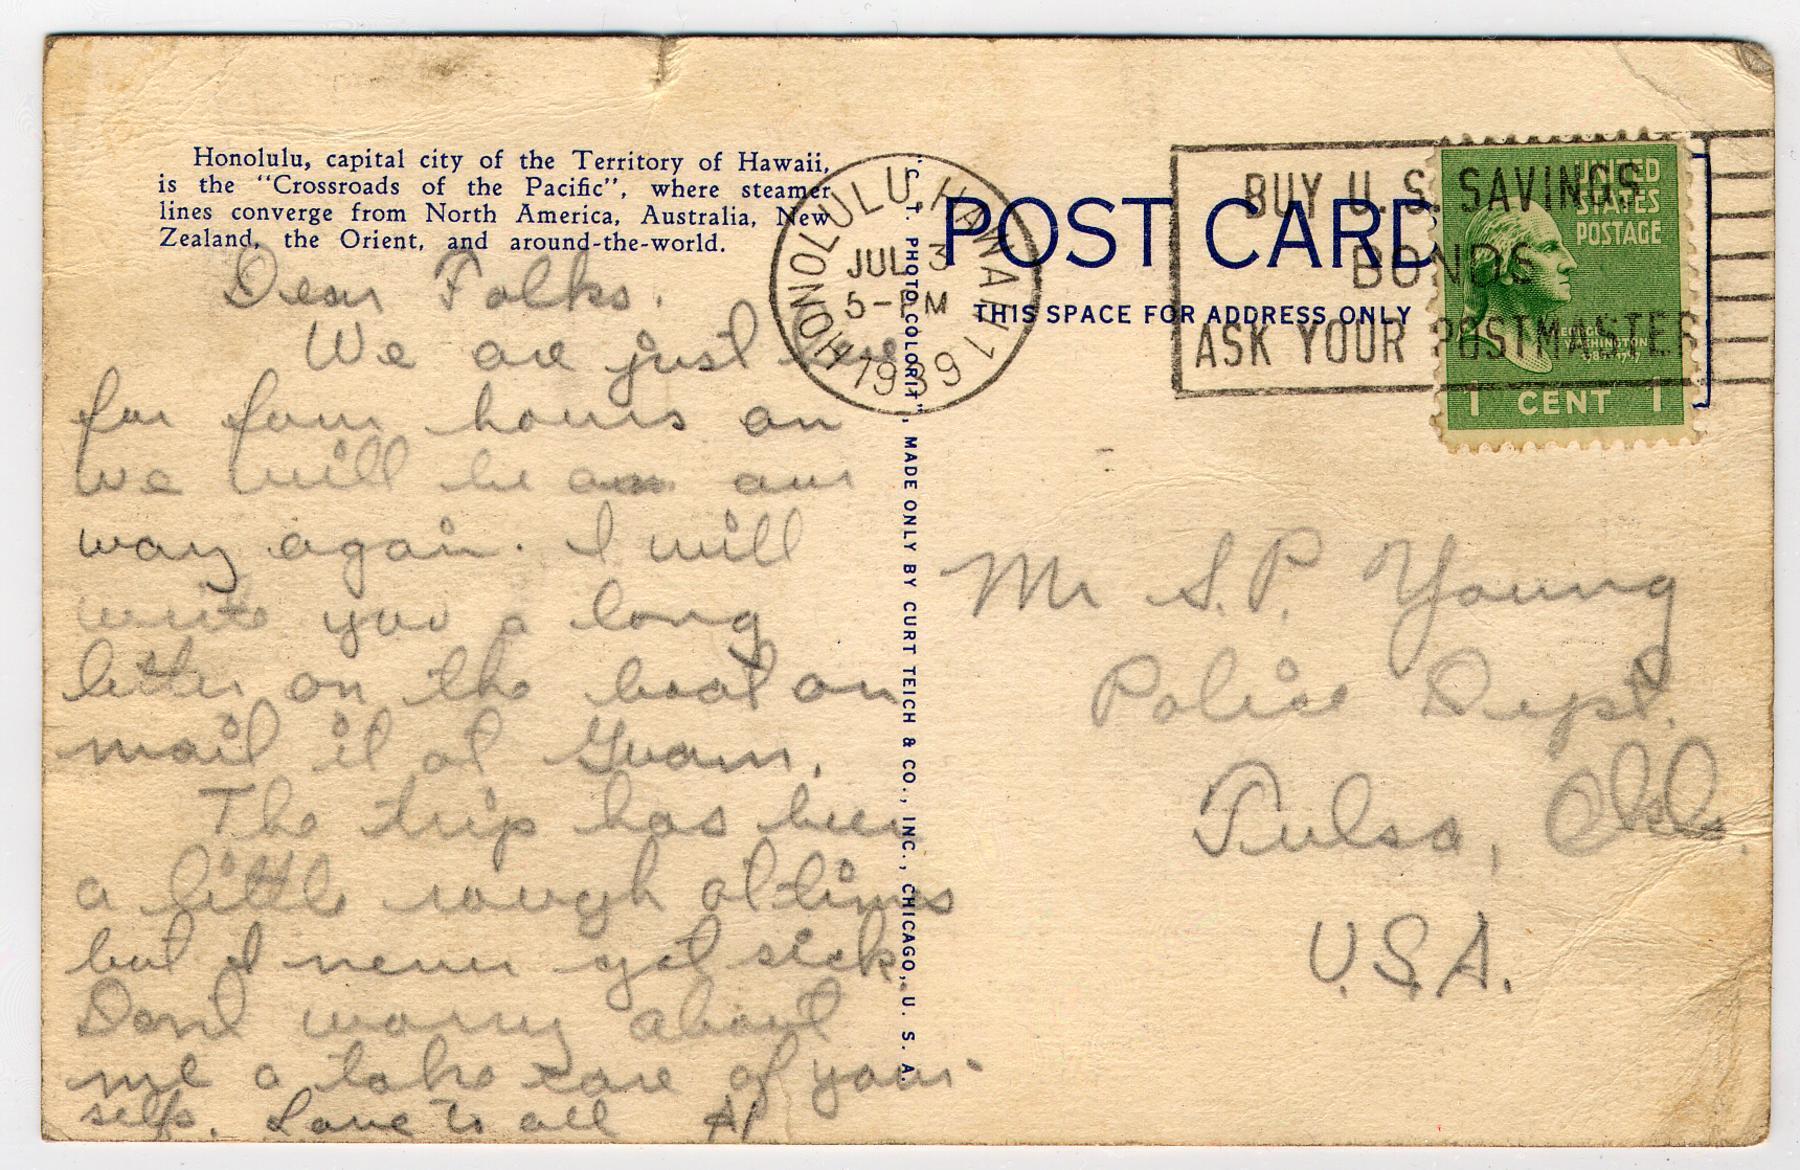 Honolulu, capital city of the Territory of Hawaii,
is the "Crossroads of the Pacific", where steamer
lines converge from North America, Australia, New
Zealand, the Orient, and around-the-world.
Dear Folks.
We are just here
for four hours an
we will be on our
way again. I will
write you a long
letter on the boat an
mail it at Guam.
The trip has been
a little rough at times
but I never got sick.
Dont worry about
me a take care of your-
selfs. Love to all Al
C. T. PHOTO COLORIT", MADE ONLY BY CURT TEICH & CO., INC., CHICAGO, U. S. A.
HONOLULU HAWAII
JUL 3
5-PM
1939
POST CARD
THIS SPACE FOR ADDRESS ONLY
BUY U. S. SAVINGS
BONDS
ASK YOUR POSTMASTER
UNITED
STATES
POSTAGE
GEORGE
WASHINGTON
1 CENT 1
Mr S.P. Young
Police Dept.
Tulsa, Okla.
U.S.A.